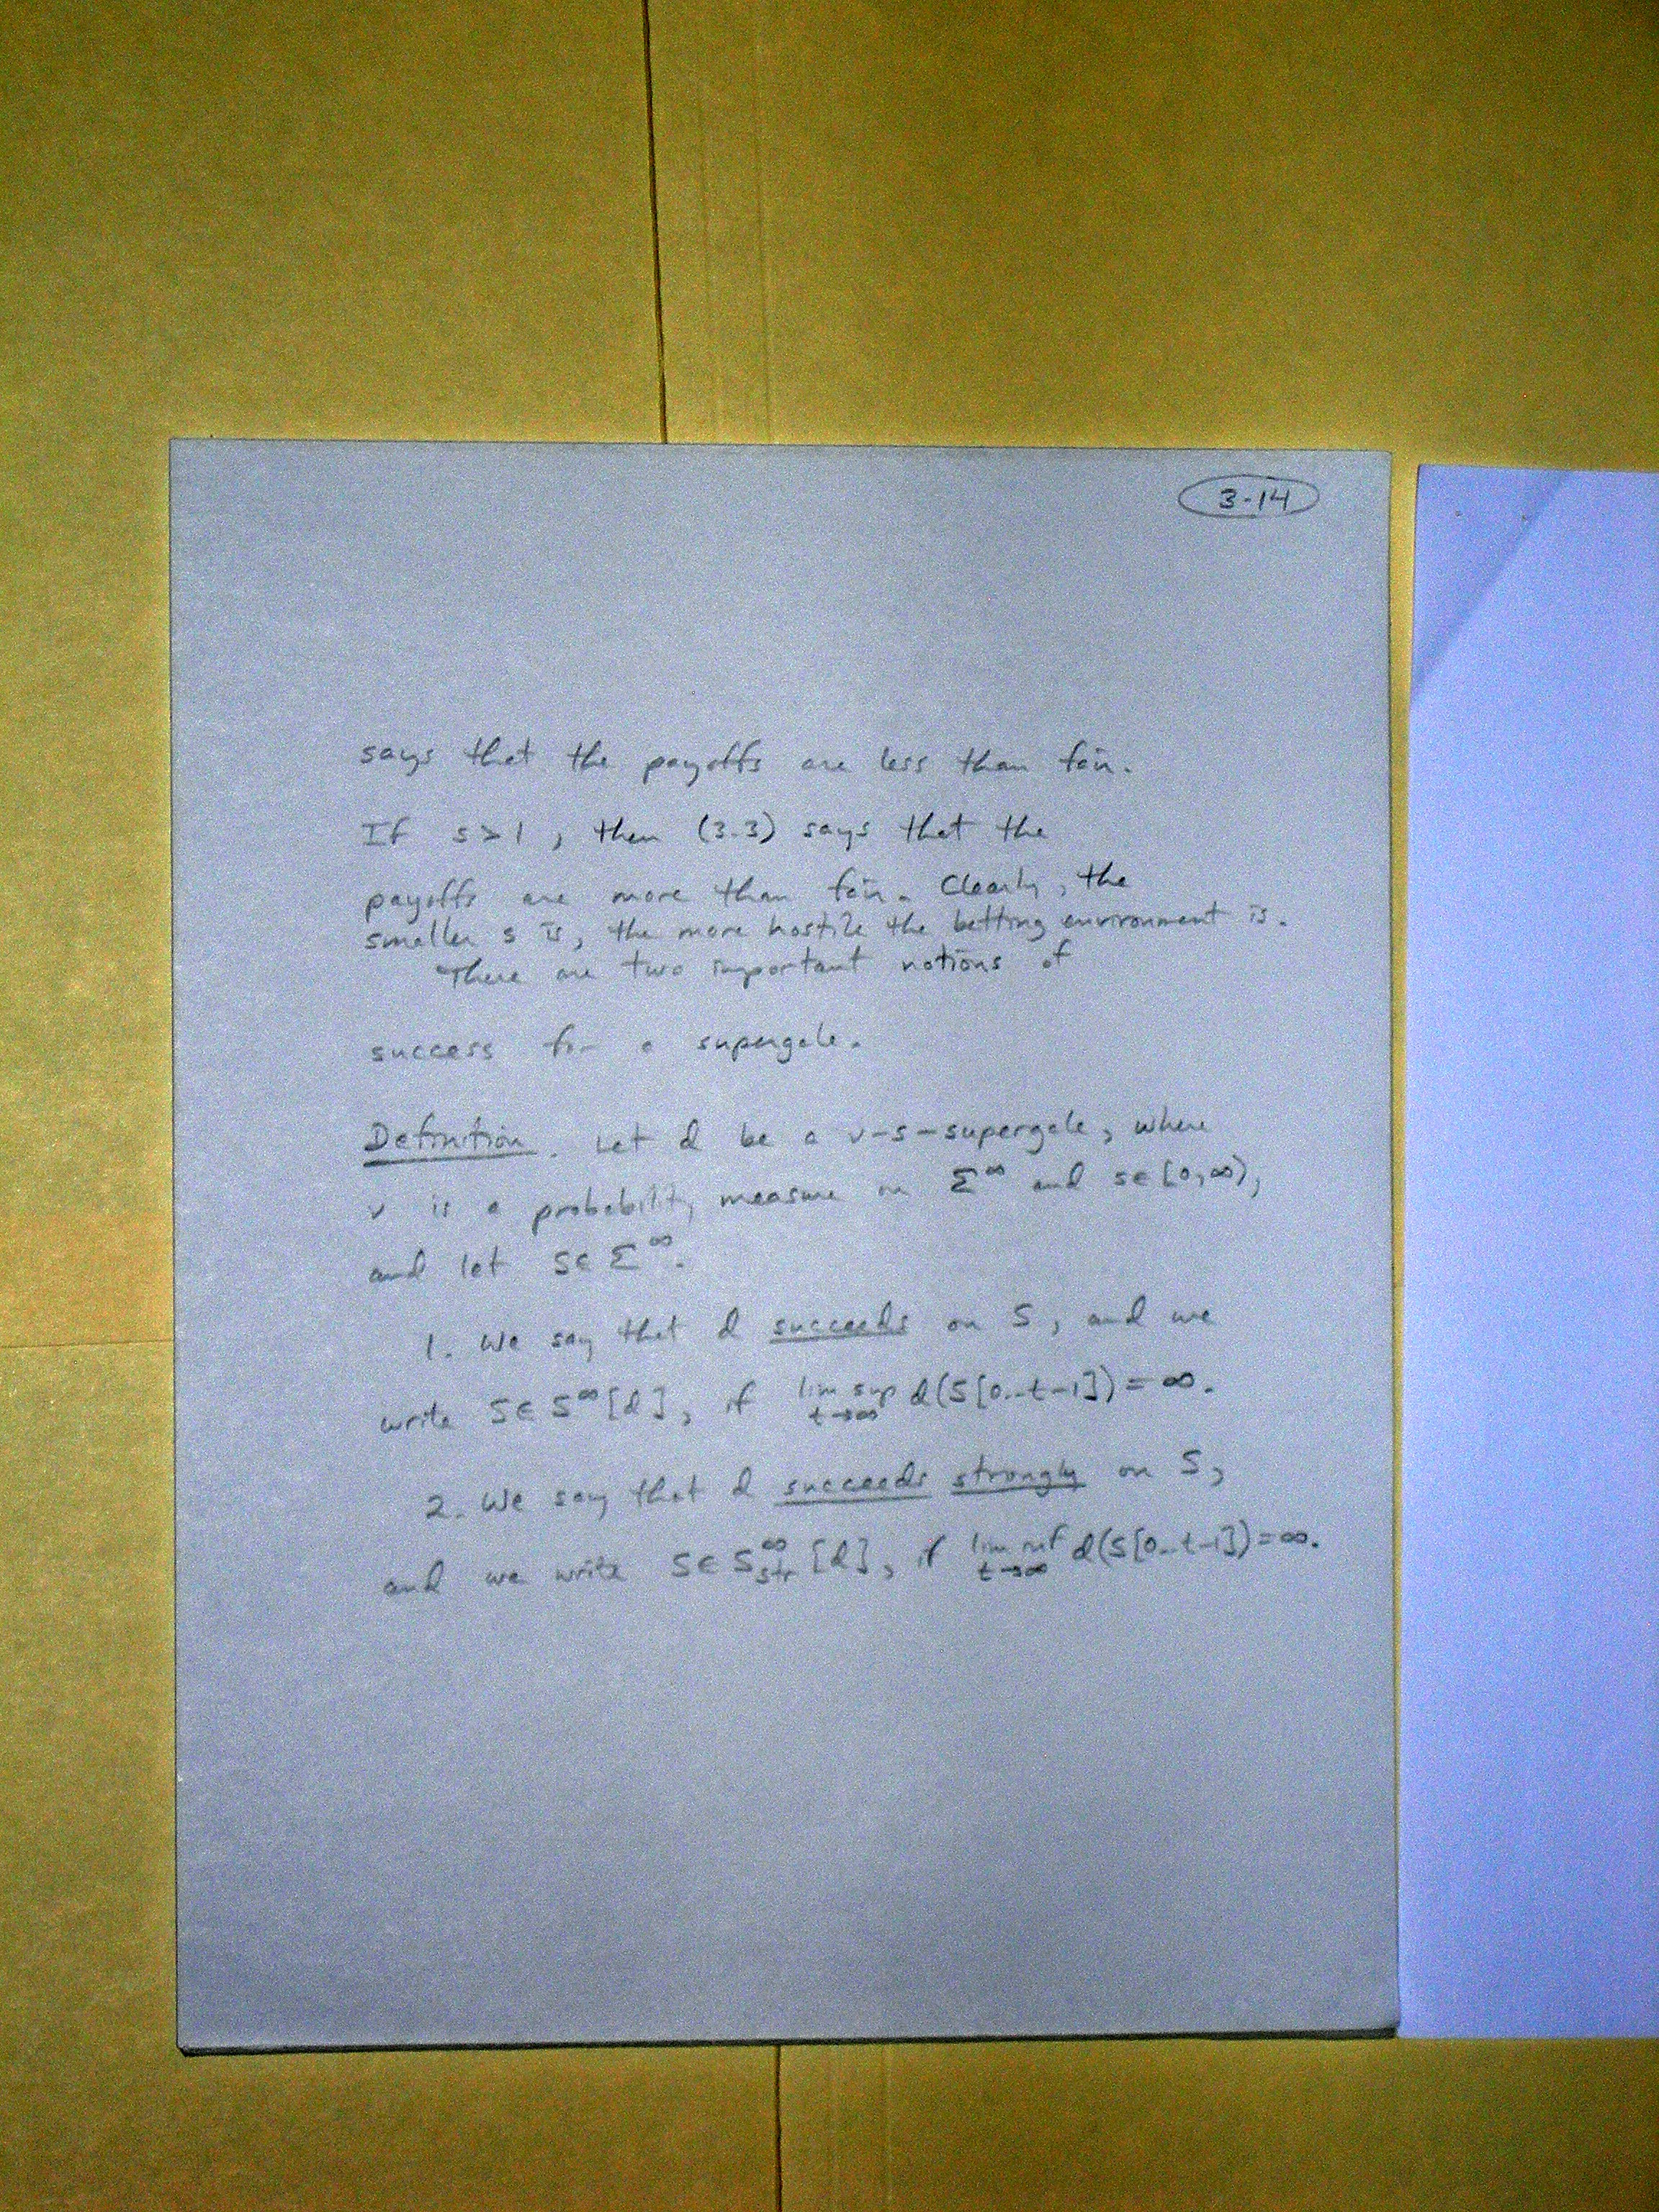 3-14
says that the payoffs are less than fair.
If s>1, then (3.3) says that the
payoffs are more than fair. Clearly, the
smaller s is, the more hostile the betting environment is.
There are two important notions of
success for a supergale.
Definition. Let d be a ν-s-supergale, where
ν is a probability measure on Σ^∞ and s∈[0,∞),
and let S∈Σ^∞.
1. We say that d succeeds on S, and we
write S∈S^∞[d], if lim sup_{t→∞} d(S[0..t-1])=∞.
2. We say that d succeeds strongly on S,
and we write S∈S^∞_str[d], if lim inf_{t→∞} d(S[0..t-1])=∞.